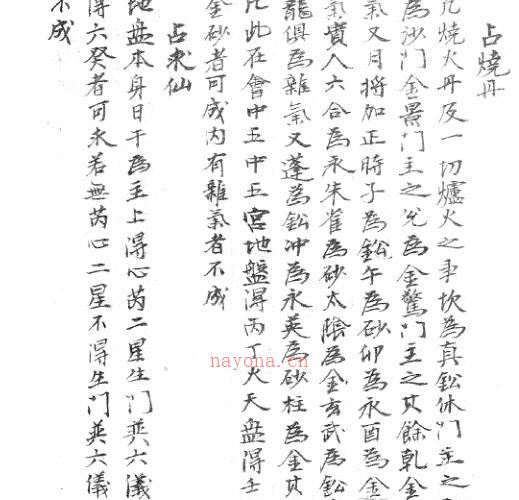 占燒丹
凡燒火丹及一切爐火之事坎為真鈆休門主之
為沙門金景門主之兌為金驚門主之其餘乾金
氣又月将加正時子為鈆午為砂卯為永酉為金
氣貴人六合為永朱雀為砂太陰為金玄武為鈆
龍俱為雜氣又蓬為鈆冲為永英為砂柱為金其
凡此在會中五中五宮地盤得丙丁火天盤得壬
金砂者可成内有雜氣者不成
占求仙
地盘本身日干為主上得心芮二星生門共六儀
得六癸者可求若無芮心二星不得生門英六儀
不成
nayona.cn